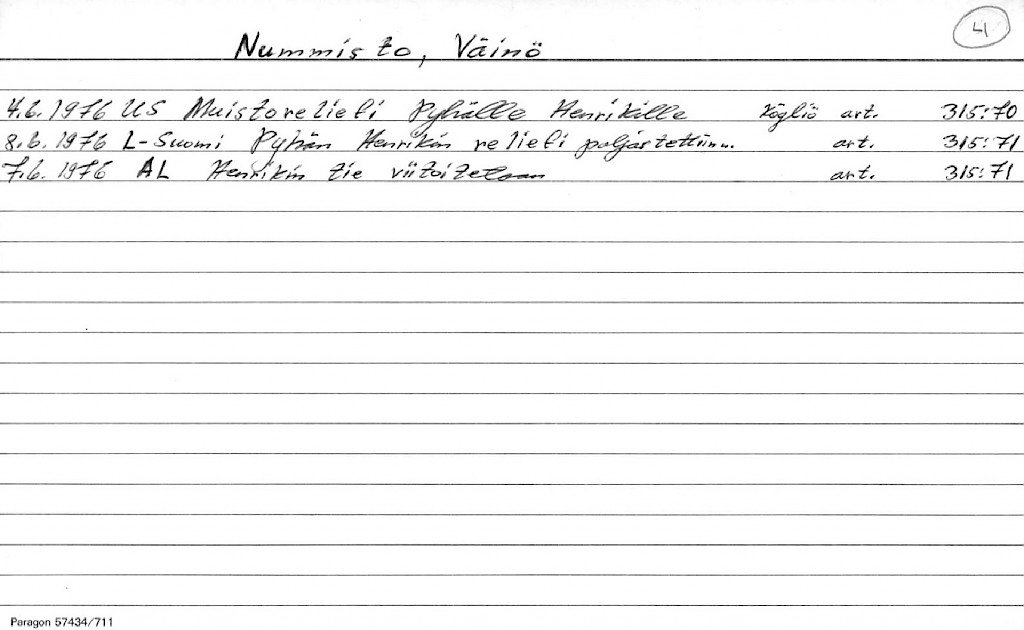 41
Nummisto, Väinö
4.6.1976 US Muistoreliefi Pyhälle Henrikille Köyliö art. 315:70
8.6.1976 L-Suomi Pyhän Henrikin reliefi paljastettiin.. art. 315:71
7.6.1976 AL Henrikin tie viitoitetaan art. 315:71
Paragon 57434/711